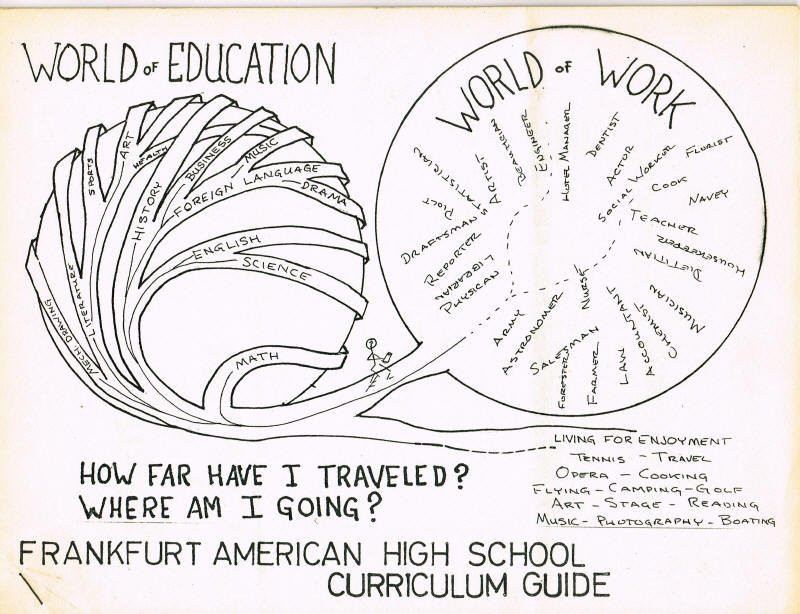 WORLD OF EDUCATION
SPORTS
ART
HEALTH
HISTORY
BUSINESS
MUSIC
FOREIGN LANGUAGE
DRAMA
ENGLISH
SCIENCE
MATH
LITERATURE
MECH DRAWING
WORLD OF WORK
STATISTICIAN
ARTIST
ENGINEER
HOTEL MANAGER
DENTIST
ACTOR
SOCIAL WORKER
FLORIST
COOK
NAVEY
TEACHER
HOUSEKEEPER
DIETITIAN
MUSICIAN
CHEMIST
ACCOUNTANT
LAW
NURSE
FARMER
FORESTER
SALESMAN
ASTRONOMER
ARMY
PHYSICAN
LIBRARIAN
REPORTER
DRAFTSMAN
LIVING FOR ENJOYMENT
TENNIS - TRAVEL
OPERA - COOKING
FLYING - CAMPING - GOLF
ART - STAGE - READING
MUSIC - PHOTOGRAPHY - BOATING
HOW FAR HAVE I TRAVELED?
WHERE AM I GOING?
FRANKFURT AMERICAN HIGH SCHOOL
CURRICULUM GUIDE